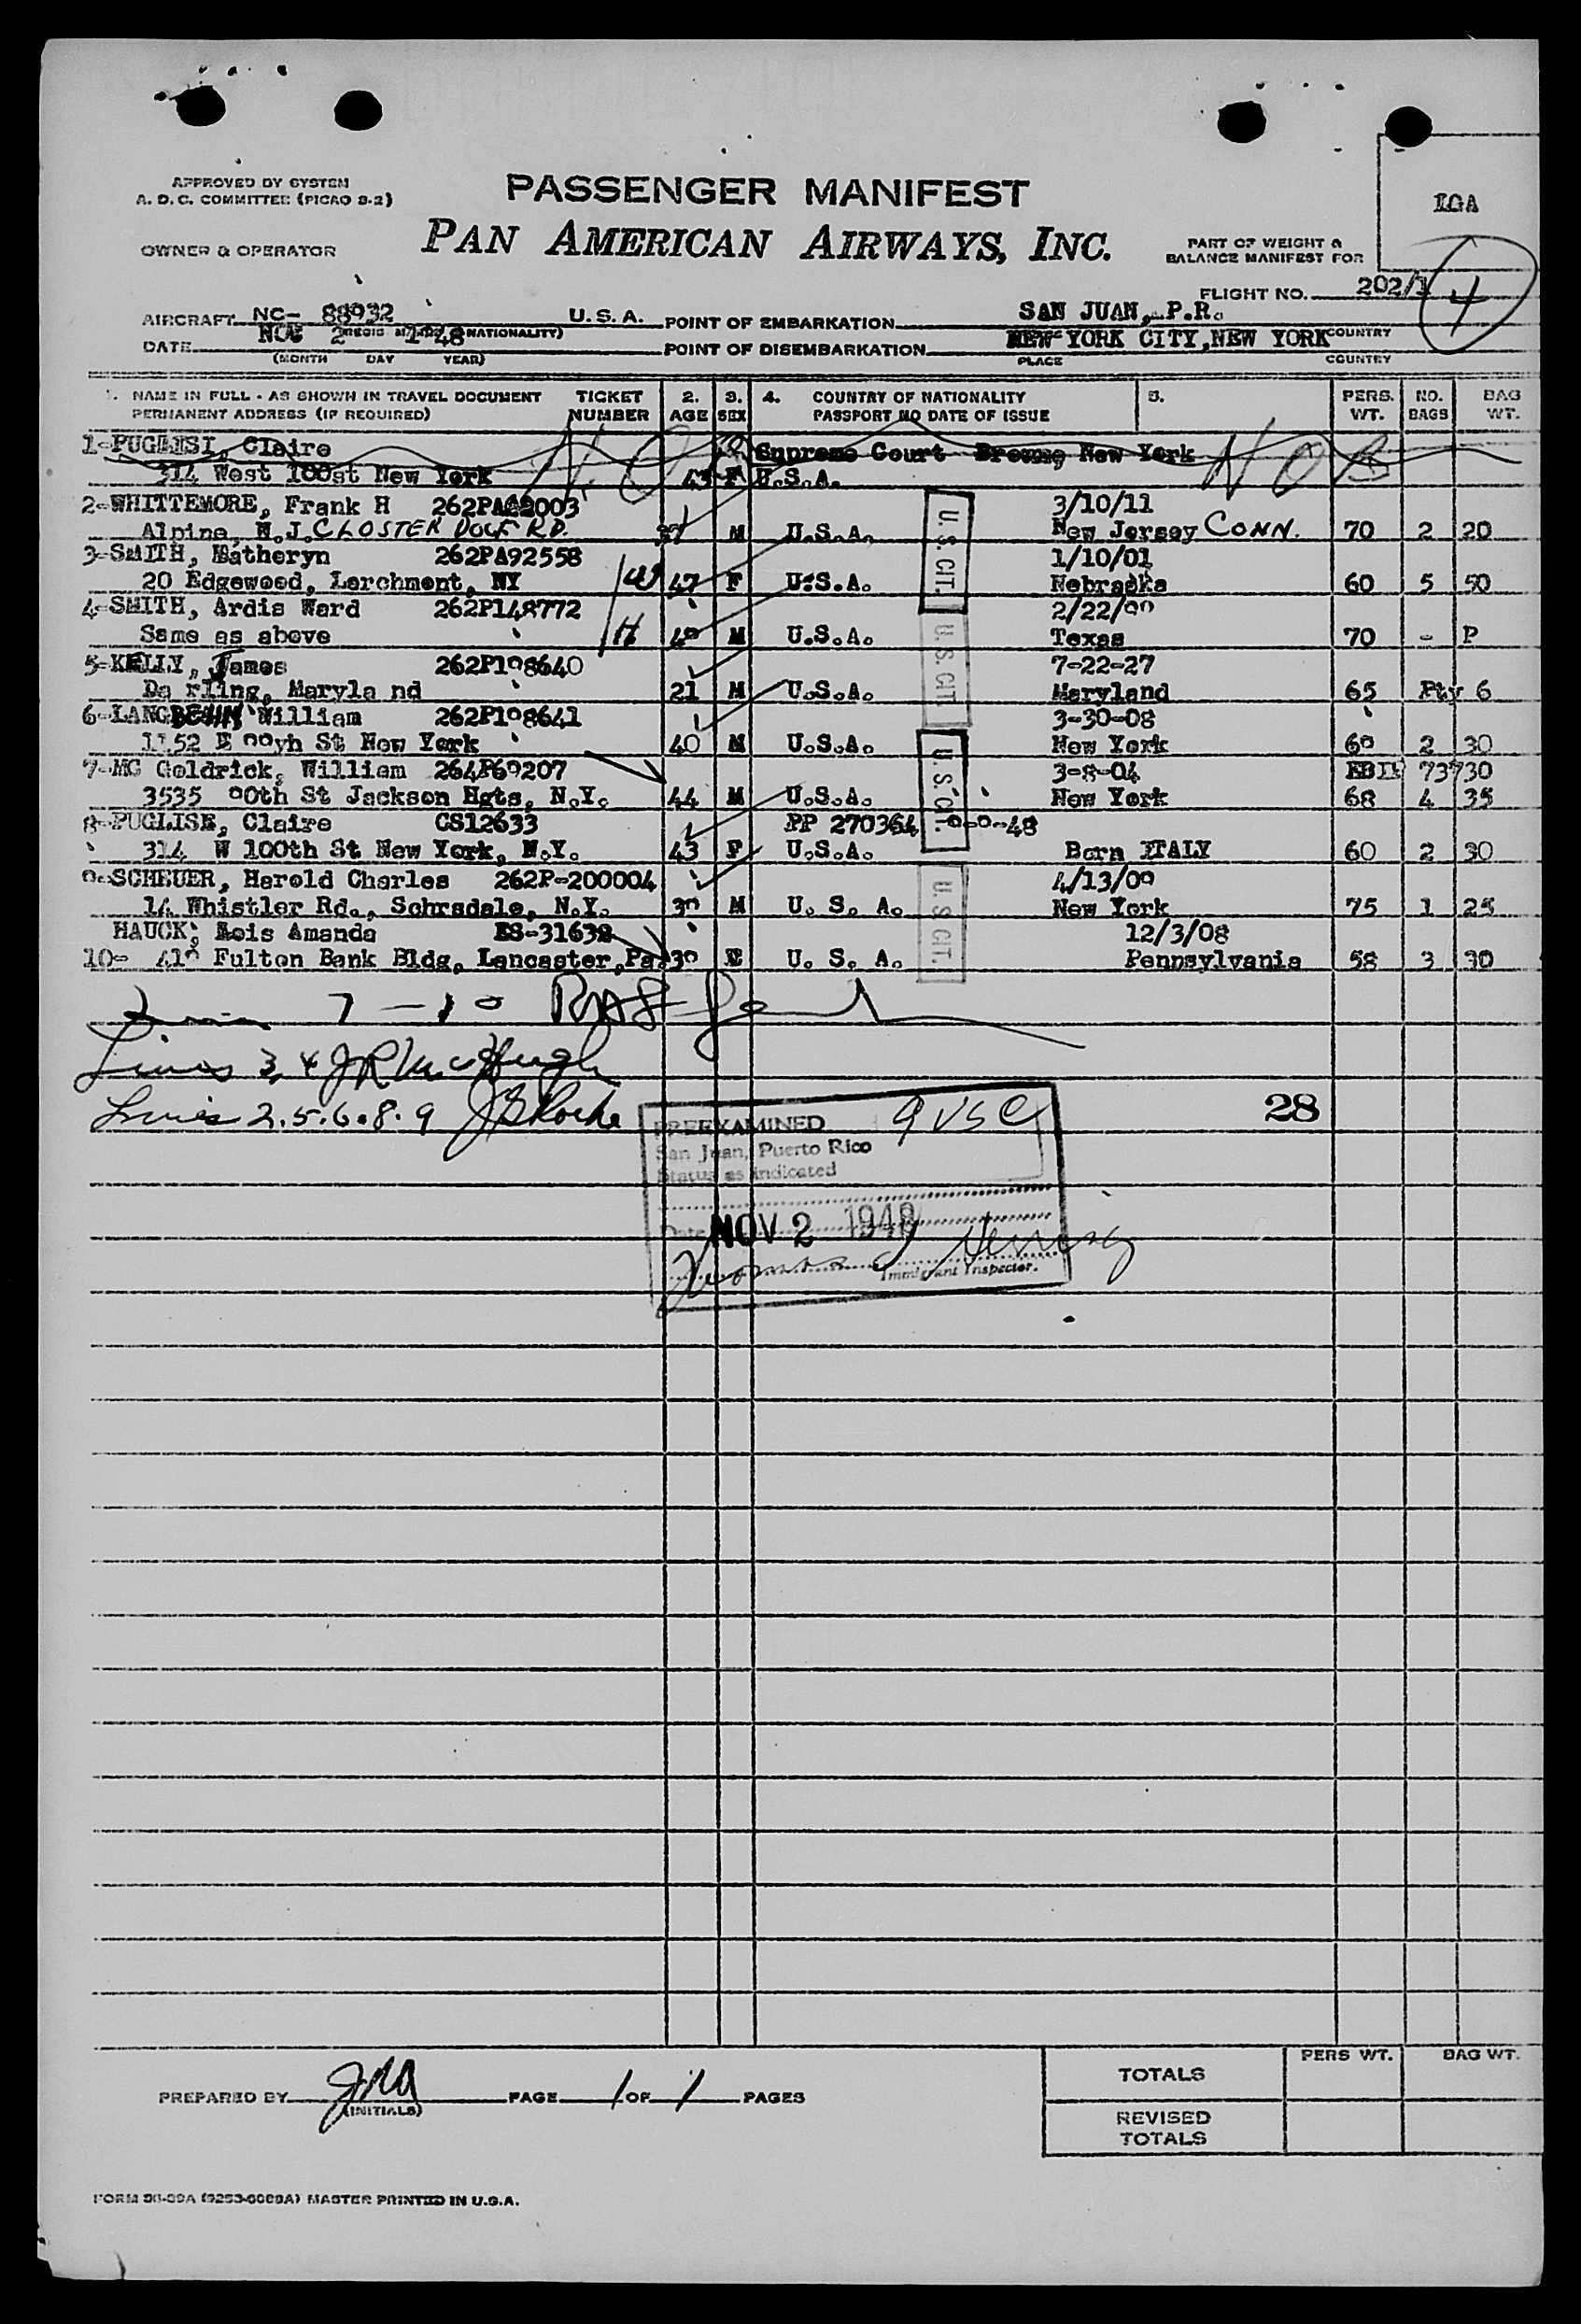 APPROVED BY SYSTEM
A. D. C. COMMITTEE (PICAO S-2)
PASSENGER MANIFEST
LGA
OWNER & OPERATOR
PAN AMERICAN AIRWAYS, INC.
PART OF WEIGHT &
BALANCE MANIFEST FOR
FLIGHT NO. 202/1
4
AIRCRAFT NC- 88932 U. S. A. POINT OF EMBARKATION SAN JUAN, P.R.
(NATIONALITY) COUNTRY
DATE NOV 2 POINT OF DISEMBARKATION NEW YORK CITY,NEW YORK
(MONTH DAY YEAR) PLACE COUNTRY
1. NAME IN FULL - AS SHOWN IN TRAVEL DOCUMENT TICKET 2. 3. 4. COUNTRY OF NATIONALITY 5. PERS. NO. BAG
PERMANENT ADDRESS (IF REQUIRED) NUMBER AGE SEX PASSPORT NO DATE OF ISSUE WT. BAGS WT.
1-PUGLISI, Claire Supreme Court New York
314 West 100st New York 43 F U.S.A. N O B
2-WHITTEMORE, Frank H 3/10/11
Alpine, N.J. CLOSTER DOCK RD. M U.S.A. New Jersey CONN. 70 2 20
3-SMITH, Matheryn 262PA92558 1/10/01
20 Edgewood, Larchmont, NY W 47 F U.S.A. Nebraska 60 5 50
4-SMITH, Ardis Ward 262P148772 2/22/00
Same as above H M U.S.A. Texas 70 - P
5-KELLY, James 262P198640 7-22-27
Da rling, Maryla nd 21 M U.S.A. Maryland 65 Pty 6
6-LANGBEHN William 262P198641 3-30-08
1152 E 99yh St New York 40 M U.S.A. New York 69 2 30
7-MC Goldrick, William 264P69207 3-8-04 73730
3535 90th St Jackson Hgts, N.Y. 44 M U.S.A. New York 68 4 35
8-PUGLISE, Claire CS12633 PP 270364 9-9-48
314 W 100th St New York, N.Y. 43 F U.S.A. Born ITALY 60 2 30
9-SCHEUER, Harold Charles 262P-200004 4/13/09
14 Whistler Rd., Schrsdale, N.Y. 39 M U. S. A. New York 75 1 25
HAUCK, Lois Amanda ES-31632 12/3/08
10- 419 Fulton Bank Bldg, Lancaster,Pa. 39 U. S. A. Pennsylvania 58 3 30
U.S. CIT.
U.S. CIT.
U.S. CIT.
U.S. CIT.
7 - 10
Lines 3, 4 J R McHugh
Lines 2.5.6.8.9 J Roche
PREEXAMINED 9 USC 28
San Juan, Puerto Rico
Status as indicated
Date NOV 2 1948
Immigrant Inspector.
PREPARED BY PAGE 1 OF 1 PAGES
(INITIALS)
TOTALS PERS WT. BAG WT.
REVISED
TOTALS
MASTER PRINTED IN U.S.A.